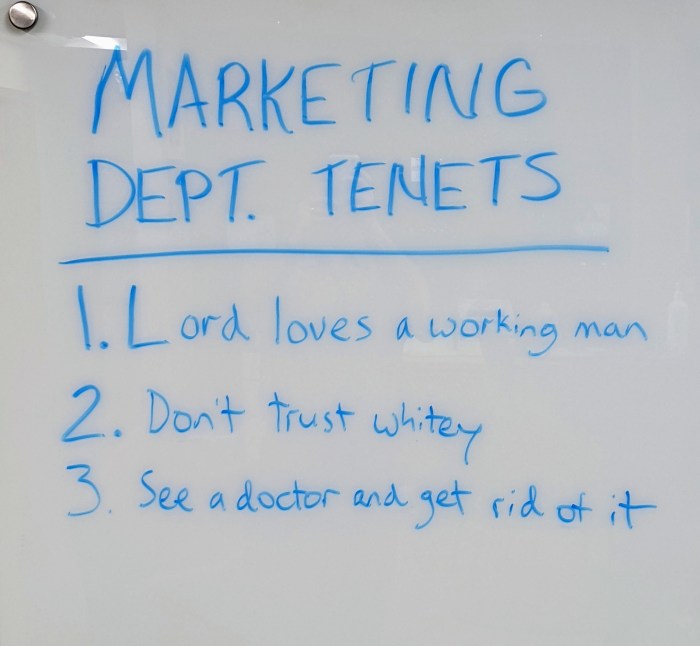 MARKETING
DEPT. TENETS
1. Lord loves a working man
2. Don't trust whitey
3. See a doctor and get rid of it